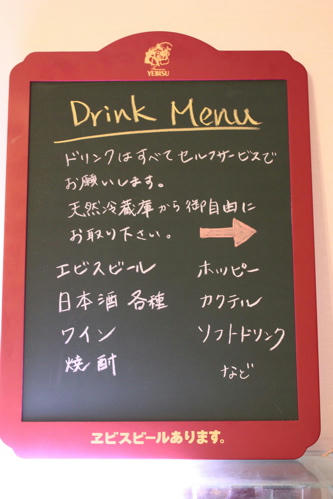 YEBISU
Drink Menu
ドリンクはすべてセルフサービスで
お願いします。
天然冷蔵庫から御自由に
お取り下さい。
エビスビール ホッピー
日本酒 各種 カクテル
ワイン ソフトドリンク
焼酎 など
ヱビスビールあります。